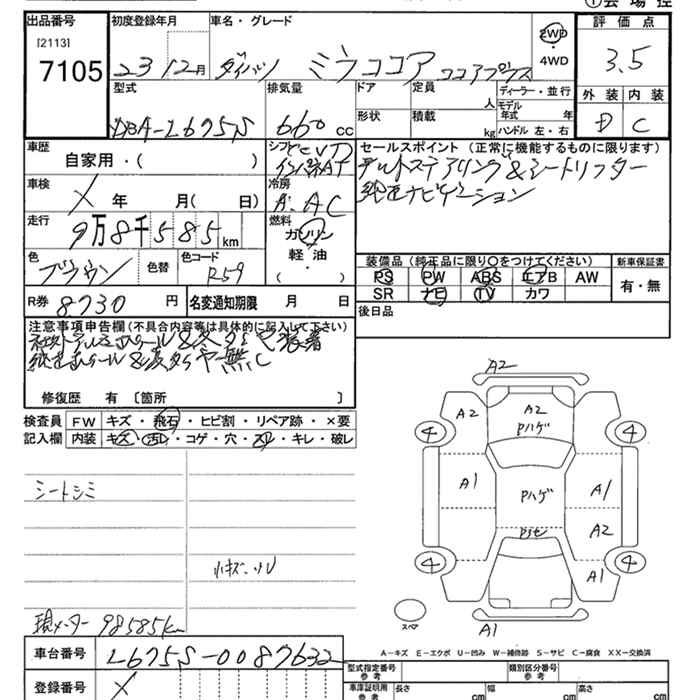 ①会場控
出品番号 初度登録年月 車名・グレード 評価点
[2113] 2WD
7105 23 12月 ダイハツ ミラココア ココアプラス ・ 3.5
4WD
型式 排気量 ドア 定員 ディーラー・並行 外装 内装
人 モデル年式 年
DBA-L675S 660 cc 形状 積載 kg ハンドル 左・右 D C
車歴 シフト CVT セールスポイント (正常に機能するものに限ります)
自家用・( ) インパネAT チルトステアリング&シートリフター
車検 冷房 純正ナビゲーション
X 年 月( 日) A.AC
走行 燃料
9万8千585km ガソリン
色 色替 色コード 軽油 装備品 (純正品に限り○をつけてください) 新車保証書
ブラウン R59 ・( ) PS PW ABS エアB AW 有・無
SR ナビ TV カワ
R券 8730 円 名変通知期限 月 日 後日品
注意事項申告欄(不具合内容等は具体的に記入して下さい)
社外アルミホイール&冬タイヤ装着
純正ホイール&夏タイヤ無し
修復歴 有 〔箇所 〕
検査員 FW キズ・飛石・ヒビ割・リペア跡・×要
記入欄 内装 キズ・汚レ・コゲ・穴・スレ・キレ・破レ
A2
A2 A2
Pハゲ
4 4
A1 Pハゲ A1
A2
4 A1 4
スペア A1
シートシミ
現メーター 98585km
A−キズ E−エクボ U−凹み W−補修跡 S−サビ C−腐食 XX−交換済
車台番号 L675S-0087632
登録番号 X
型式指定番号 参考 類別区分番号 参考
車庫証明用 参考 長さ cm 幅 cm 高さ cm